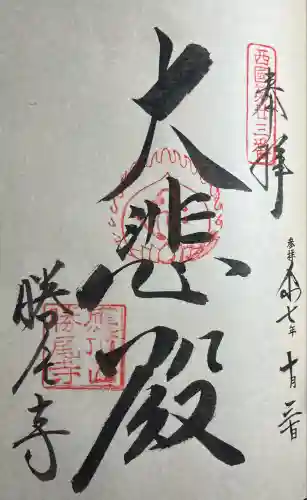 西國廿三番
奉拝
参拝 令七年 十月二日
大悲殿
應頂山
勝尾寺
勝尾寺